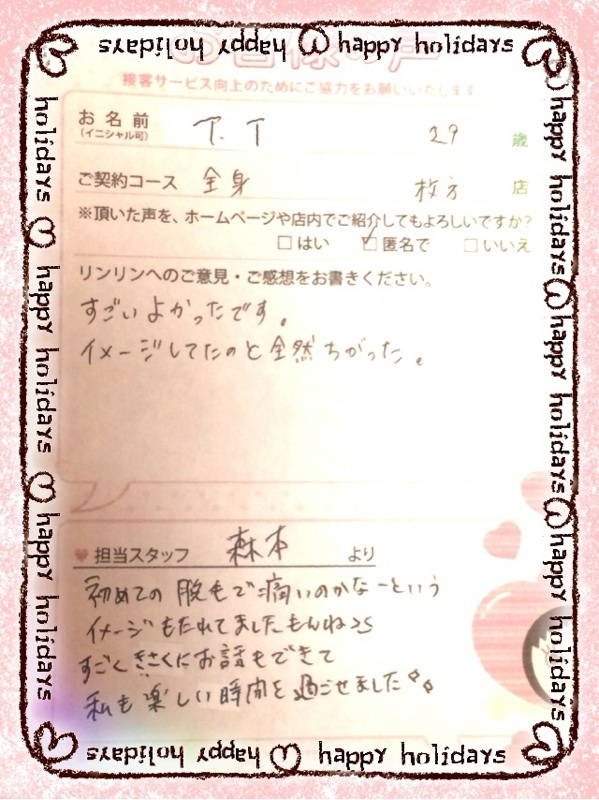 happy holidays happy holidays
お客様の声
接客サービス向上のためにご協力をお願いいたします
お名前
(イニシャル可)
T. T 29 歳
ご契約コース 全身 枚方 店
※頂いた声を、ホームページや店内でご紹介してもよろしいですか?
□はい ☑匿名で □いいえ
リンリンへのご意見・ご感想をお書きください。
すごいよかったです。
イメージしてたのと全然ちがった。
担当スタッフ 森本 より
初めての脱毛で痛いのかなーという
イメージもたれてましたもんね
すごくきさくにお話もできて
私も楽しい時間を過ごせました
holidays happy holidays happy holidays
happy holidays happy holidays happy holidays
happy holidays happy holidays